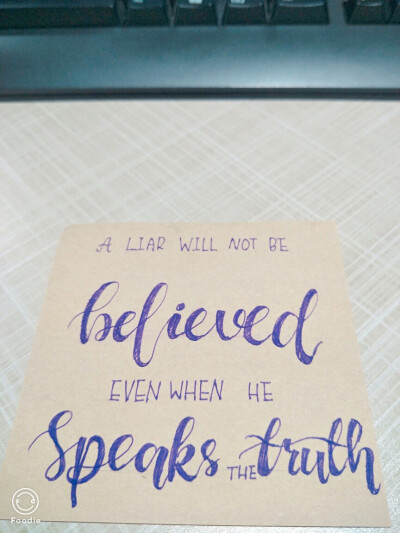 A LIAR WILL NOT BE
believed
EVEN WHEN HE
Speaks THE truth
Foodie